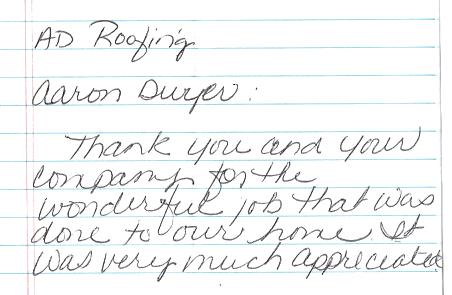 AD Roofing
Aaron Dwyer:
Thank you and your
company for the
wonderful job that was
done to our home It
was very much appreciated